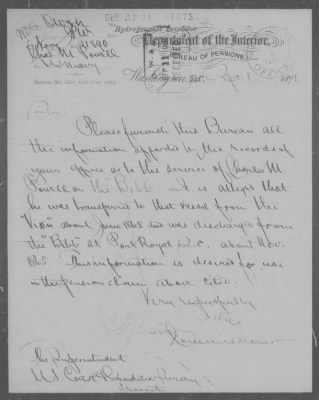 Navy
Chas. M. Powell
U.S. Navy
Return this slip with your reply.
Hydrographic Inspector
Department of the Interior,
BUREAU OF PENSIONS
Washington, D.C.
Sir:
Please furnish this Bureau all
the information afforded by the records of
your office as to the service of Charles M.
Powell on the Bibb. It is alleged that
he was transferred to that vessel from the
about June 1865 and was discharged from
the "Bibb" at Port Royal S.C. about Nov.
1865 This information is desired for use
in the pension claim above cited.
Very respectfully
Commissioner
The Superintendent
U.S. Coast & Survey